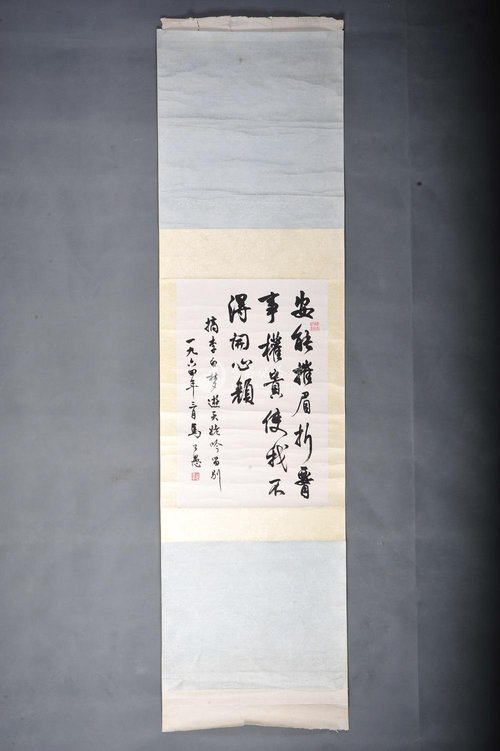 安能摧眉折腰
事權貴使我不
得開心顏
摘李白梦遊天姥吟留別
一九六四年三月馬公愚